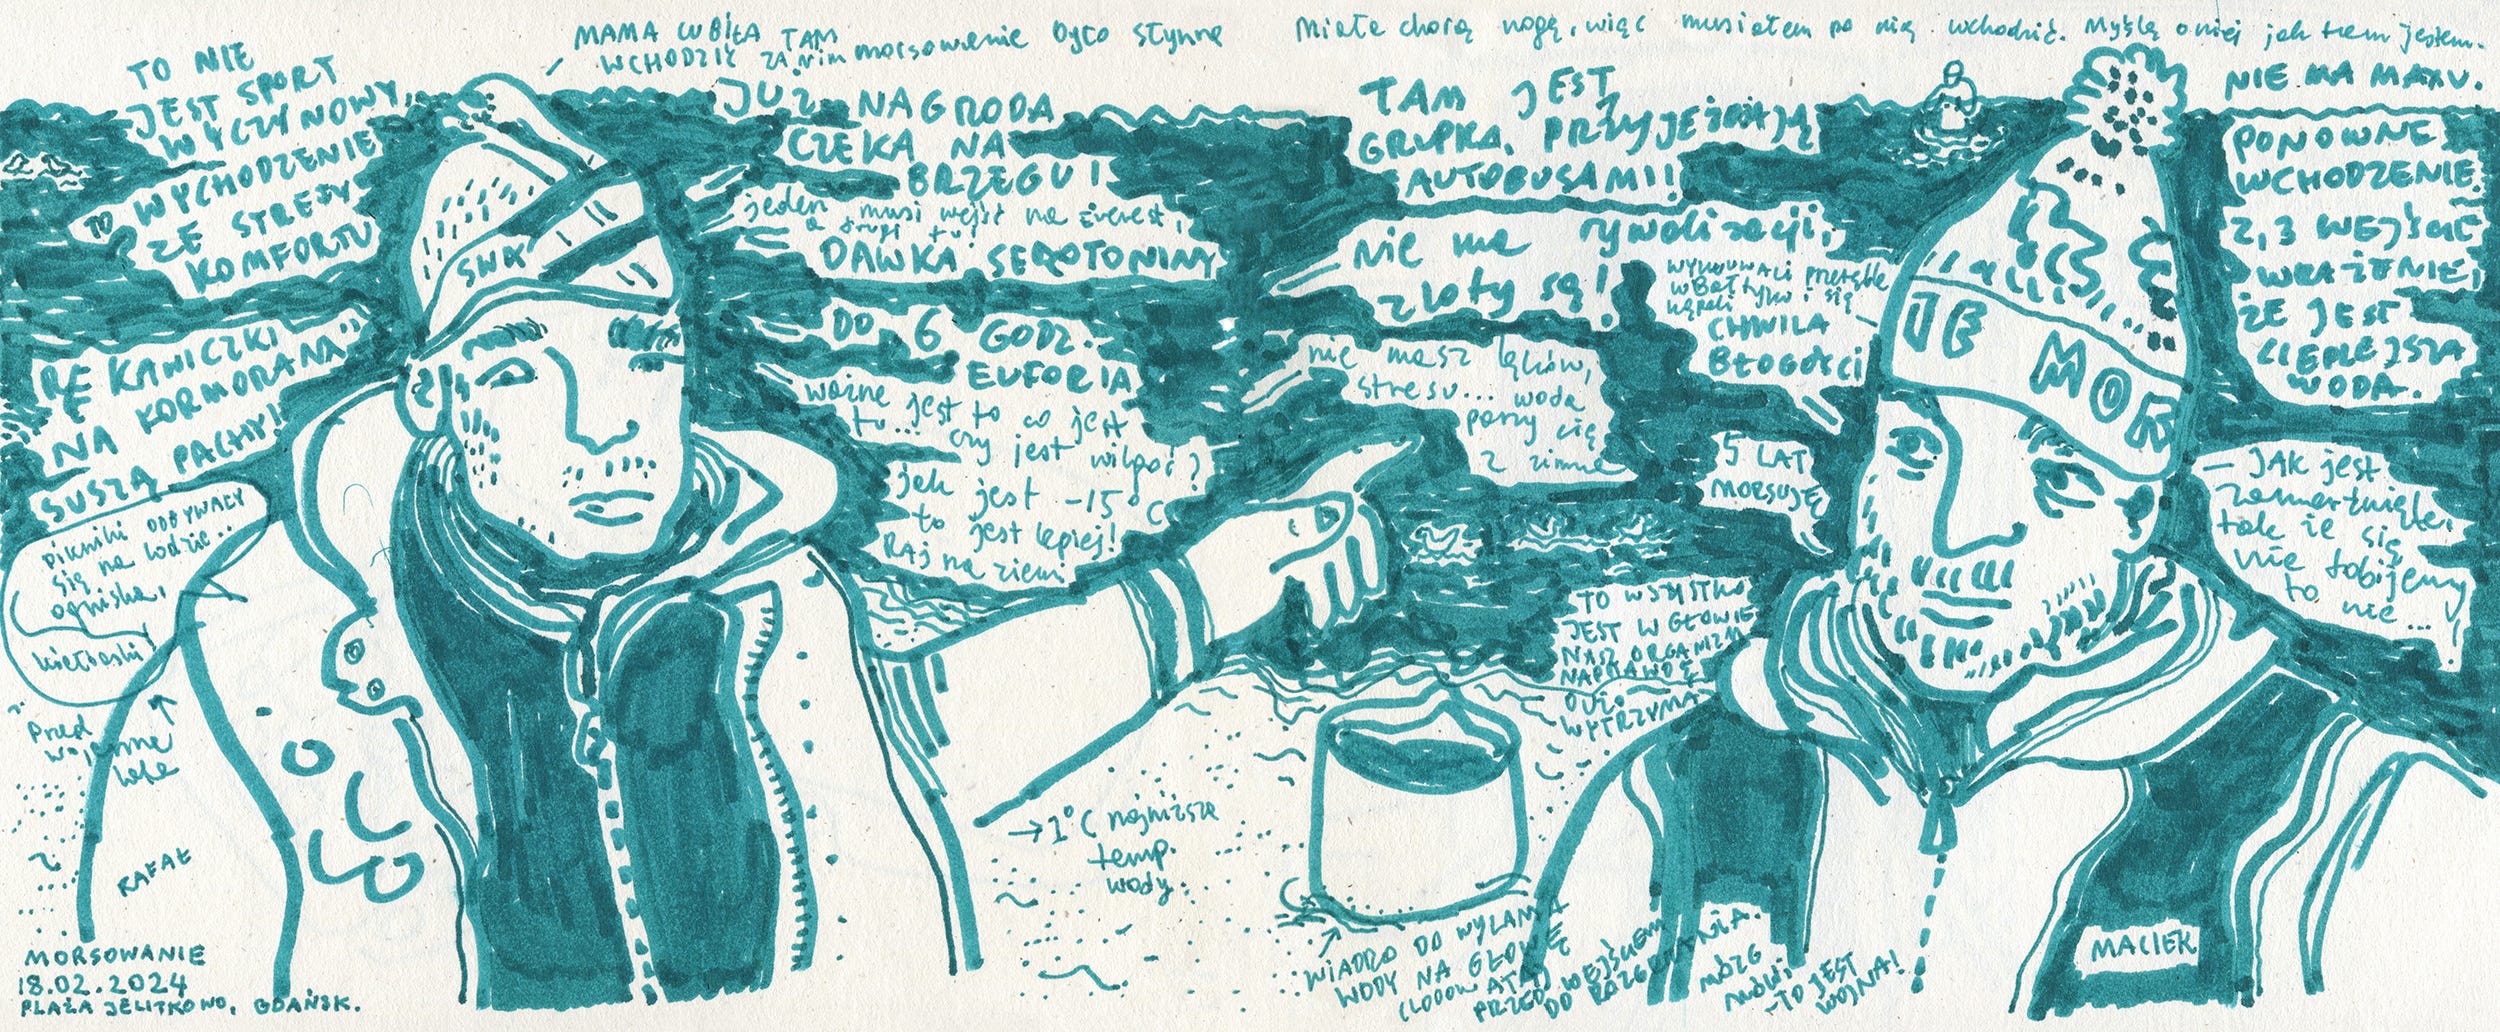 MAMA LUBIŁA TAM
WCHODZIĆ ZANIM morsowanie było słynne
Miała chorą nogę, więc musiałem po nią wchodzić. Myślę o niej jak tam jestem.
TO NIE
JEST SPORT
WYCZYNOWY,
TO WYCHODZENIE
ZE STREFY
KOMFORTU
RĘKAWICZKI
NA KORMORANA"
SUSZĄ PACHY!
pikniki ODBYWAŁY
się na lodzie.
ogniska,
kiełbaski!
Przed
wojenne
SWX
JUŻ NAGRODA
CZEKA NA
BRZEGU!
jeden musi wejść na Everest,
a drugi tu!
DAWKA SEROTONINY
DO 6 GODZ.
EUFORIA
ważne jest to co jest
tu... czy jest wilgoć?
jak jest -15°C
to jest lepiej!
Raj na ziemi
TAM JEST
GRUPKA. PRZYJEŻDŻAJĄ
AUTOBUSAMI!
nie ma rywalizacji,
zloty są!
WYKUWALI przeręble
w Bałtyku i się
kąpali
CHWILA
BŁOGOŚCI
nie masz lęków,
stresu... woda
parzy cię
z zimna
5 LAT
MORSUJĘ
TO WSZYSTKO
JEST W GŁOWIE
NASZ ORGANIZM
NAPRAWDĘ
DUŻO
WYTRZYMA
NIE MA MAXU.
PONOWNE
WCHODZENIE.
2, 3 WEJŚCIE
WRAŻENIE,
ŻE JEST
CIEPLEJSZA
WODA.
JE MOR
– JAK jest
zamarznięte,
tak że się
nie
to nie...
→ 1°C najniższa
temp.
wody.
WIADRO DO WYLANIA
WODY NA GŁOWĘ
PRZED WEJŚCIEM
DO ROZGRZANIA.
MÓZG
MÓWI
– TO JEST
WOJNA!
RAFAŁ
MACIEK
MORSOWANIE
18.02.2024
PLAŻA JELITKOWO, GDAŃSK.